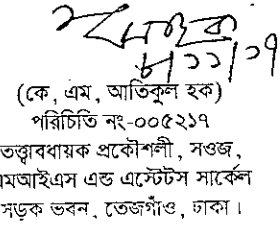 ৮/১১/১৭
(কে, এম, আতিকুল হক)
পরিচিতি নং-০০৫২১৭
তত্ত্বাবধায়ক প্রকৌশলী, সওজ,
মআইএস এন্ড এস্টেটস সার্কেল
সড়ক ভবন, তেজগাঁও, ঢাকা।